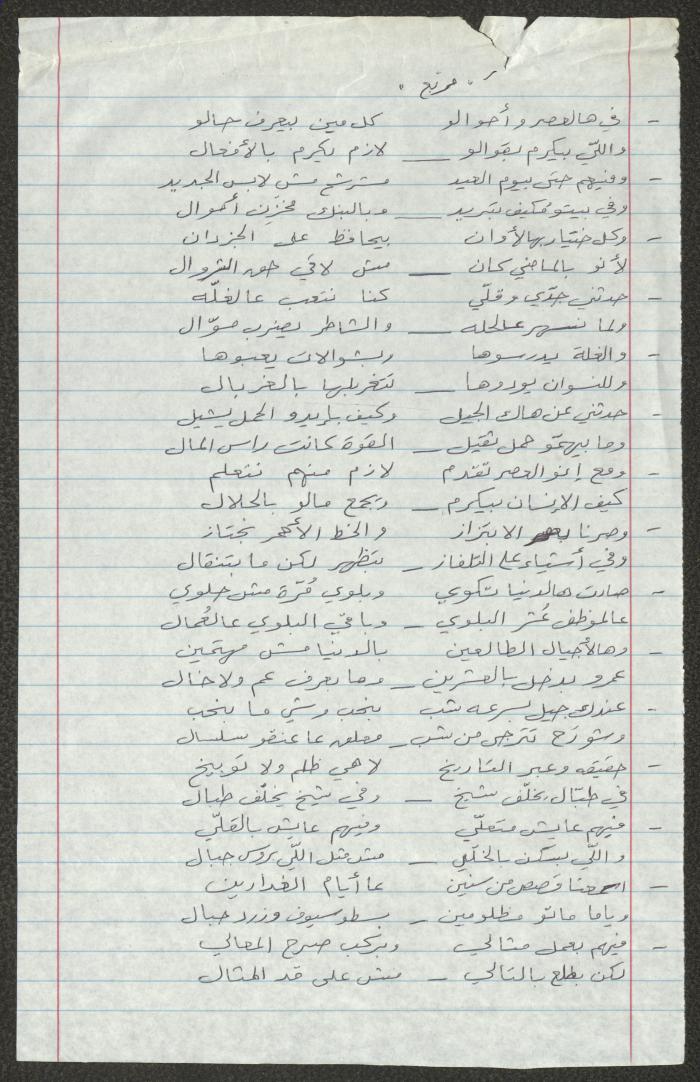 " مربّع "
- في هالعصر وأحوالو كل مين بيعرف حالو
واللّي بيكرم بقوالو — لازم يكرم بالأفعال
- وفيهم حتى بيوم العيد مسترشح مش لابس الجديد
وفي بيتو مْكيّف تبريد — وبالبنك مخزّن أموال
- وكل ختيار بهالأوان بيحافظ على الجزدان
لأنو بالماضي كان — مش لاقي حق الشروال
- حدثني جدّي وقلّي كنا نتعب عالغلّه
ولما نسهر عالحله — والشاطر يضرب موّال
- والغلة يدرسوها وبشوالات يعبوها
وللنسوان يودوها — تتغربلها بالغربال
- حدثني عن هاك الجيل وكيف بإيدو الحمل يشيل
وما بيهمّو حمل تقيل — القوة كانت راس المال
- ومع إنو العصر تقدم لازم منهم نتعلم
كيف الإنسان بيكرم — ويجمع مالو بالحلال
- وصرنا الابتزاز والخط الأحمر نجتاز
وفي أشياء على التلفاز — بتظهر لكن ما بتنقال
- صارت هالدنيا تكوي وبلوي مُرّة مش حلوي
عالموظف عُشر البلوي — وباقي البلوي عالعُمال
- وهالأجيال الطالعين بالدنيا مش مهتمين
عمرو بدخل بالعشرين — وما بعرف عم ولا خال
- عندك جيل بسرعه شب بنحب وشي ما بنحب
وشو رَح تترجى من شب — معلق عا عنقو سلسال
- حقيقه وعبر التاريخ لا هي ظلم ولا توبيخ
في طبّال بخلّف شيخ — وفي شيخ يخلّف طبال
- فيهم عايش متعلّي وفيهم عايش بالقلّي
واللّي بيسكن بالخلّي — مش متل اللّي بروس جبال
- اسمعنا قصص من سنين عا أيام الغدارين
وياما ماتو مظلومين — بسطو سيوف وزرد حبال
- فيهم بعمل مثالي وبركب صرح المعالي
لكن بطلع بالتالي — مش على قد المثال